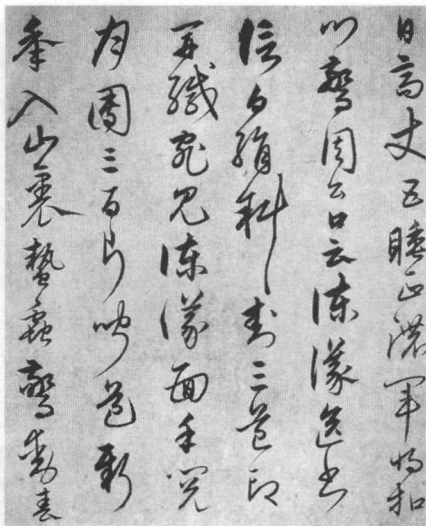 日高丈五睡正濃軍將扣
門驚周公口云諫議送書
信白絹斜封三道印
開緘宛見諫議面手閱
月團三百片聞道新
年入山裏蟄蟲驚動春